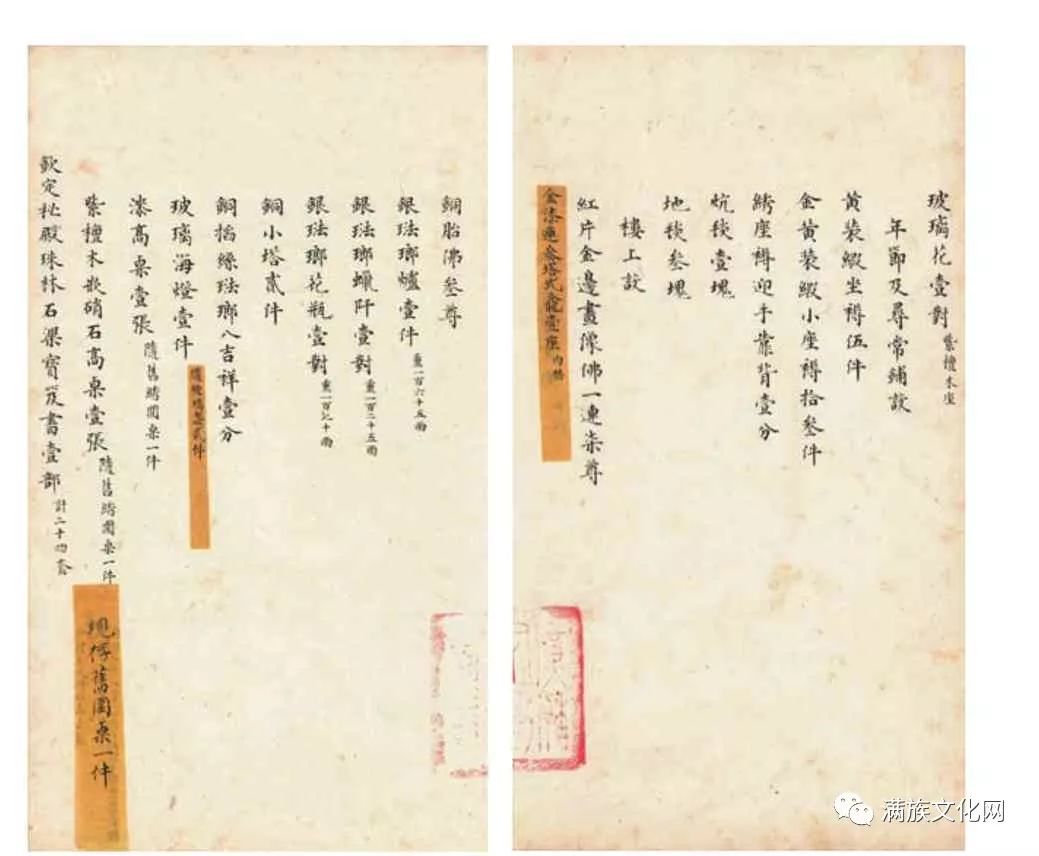 玻璃花壹對 紫檀木座
年節及尋常鋪設
黃裝緞坐褥伍件
金黃裝緞小座褥拾叄件
綉座褥迎手靠背壹分
炕毯壹塊
地毯叄塊
樓上設
紅片金邊畫像佛一連柒尊
金漆連叄塔式龕壹座
銅胎佛叄尊
銀琺瑯爐壹件 重一百六十五兩
銀琺瑯蠟阡壹對 重一百二十五兩
銀琺瑯花瓶壹對 重一百七十兩
銅小塔貳件
銅掐絲琺瑯八吉祥壹分
玻璃海燈壹件
漆高桌壹張 隨舊綉圍桌一件
紫檀木嵌硝石高桌壹張 隨舊綉圍桌一件
現存舊圍桌一件
欽定秘殿珠林石渠寶笈書壹部 計二十四套
满族文化网